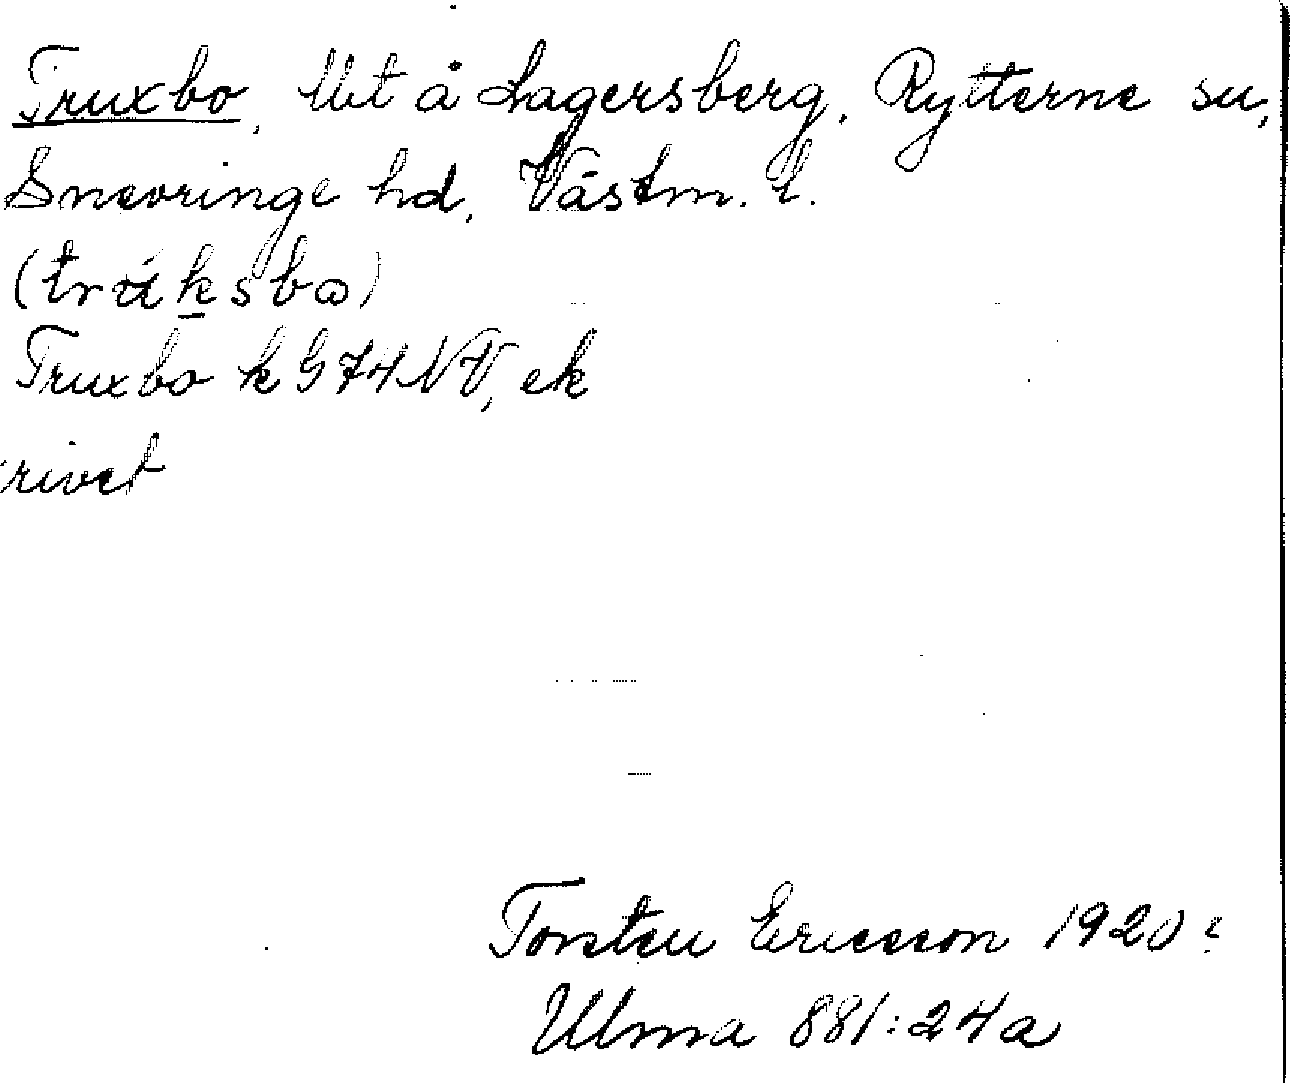 Truxbo, Ut å Lagersberg, Rytterne sn,
Snevringe hd, Västm. l.
(trúksbo)
Truxbo k G74NV, ek
krivet
Torsten Ericsson 1920
Ulma 881:24a